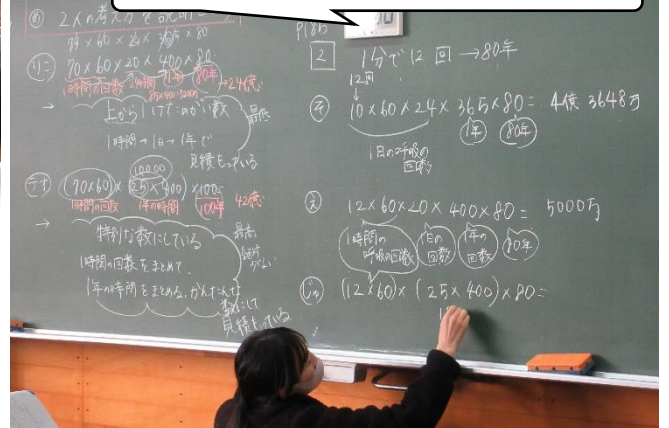 め 2人の考え方を説明
75×60×24×365×80
り 70×60×20×400×80
1時間の回数 24時間 1年 80年 →24億
→ 上から1けたのがい数
最低
1時間→1日→1年で
見積もっている
10000
テオ (70×60)×(25×400)×100
1時間の回数 1年の時間 100年 42億
→ 特別な数にしている
最高
1時間の回数をまとめて、
1年の時間をまとめる、かんたんな
数にして
見積もっている
P186
2 1分で12回→80年
12回
↓
そ 10×60×24×365×80= 4億3648万
1年 80年
1日の呼吸の
回数
え 12×60×20×400×80= 5000万
1時間の
呼吸の回数
1日の
回数
1年の
回数
80年
じゅ (12×60)×(25×400)×80=